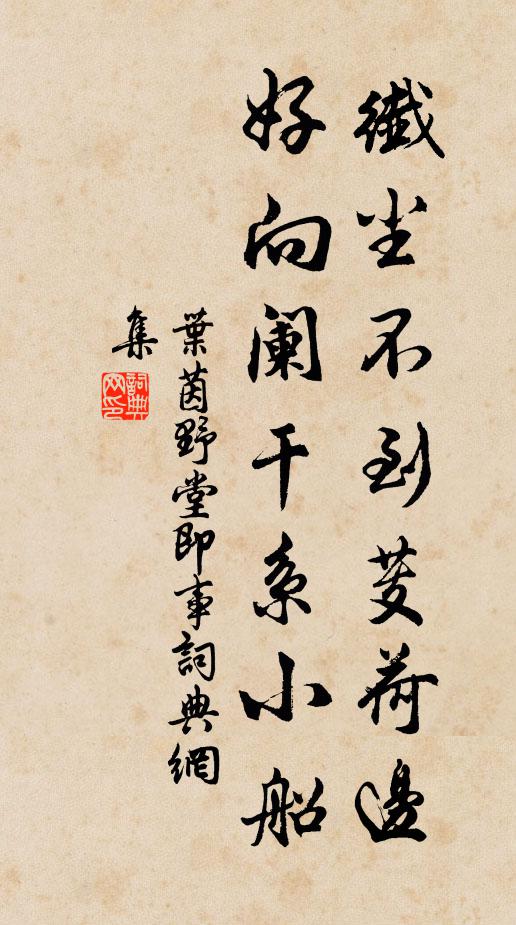 纖尘不到芰荷邊
好向阑干系小船
葉茵野堂即事詞典網
集
詞典
网印